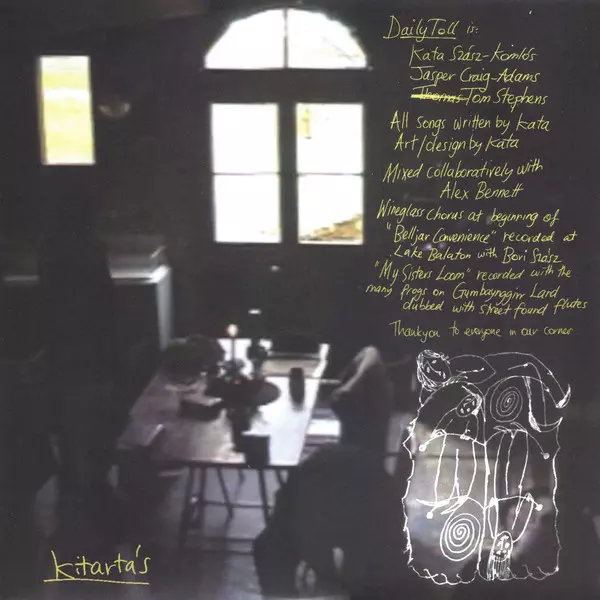 Daily Toll is:
Kata Szász-Komlós
Jasper Craig-Adams
Thomas Tom Stephens
All songs written by Kata
Art/design by Kata
Mixed collaboratively with
Alex Bennett
Wineglass chorus at beginning of
"Belljar Convenience" recorded at
Lake Balaton with Bori Szász
"My Sisters Loom" recorded with the
many frogs on Gumbaynggirr Land
dubbed with street found flutes
Thankyou to everyone in our corner
kitartás